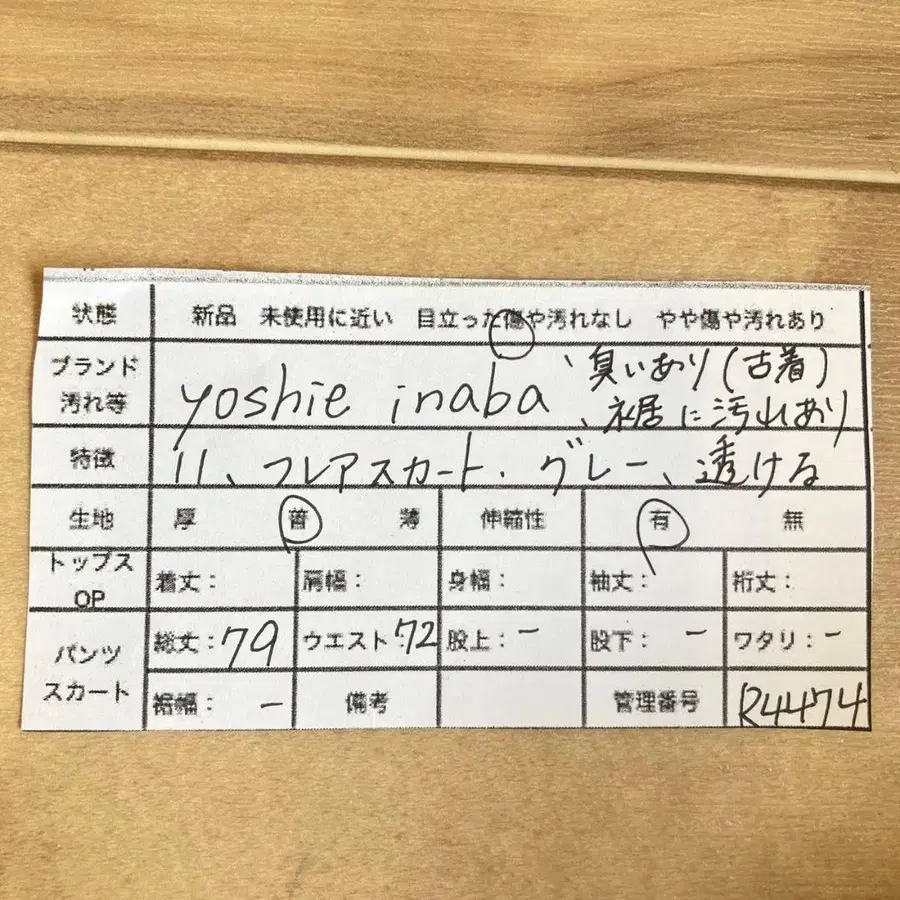 状態 新品 未使用に近い 目立った傷や汚れなし やや傷や汚れあり
ブランド 汚れ等 yoshie inaba 、臭いあり(古着)
、裾に汚れあり
特徴 11、フレアスカート・グレー、透ける
生地 厚 普 薄 伸縮性 有 無
トップス OP 着丈: 肩幅: 身幅: 袖丈: 裄丈:
パンツ スカート 総丈:79 ウエスト:72 股上:- 股下:- ワタリ:-
裾幅:- 備考 管理番号 R4474